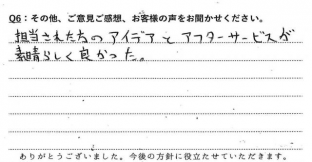 Q6：その他、ご意見ご感想、お客様の声をお聞かせください。
担当された方のアイデアとアフターサービスが
素晴らしく良かった。
ありがとうございました。今後の方針に役立たせていただきます。